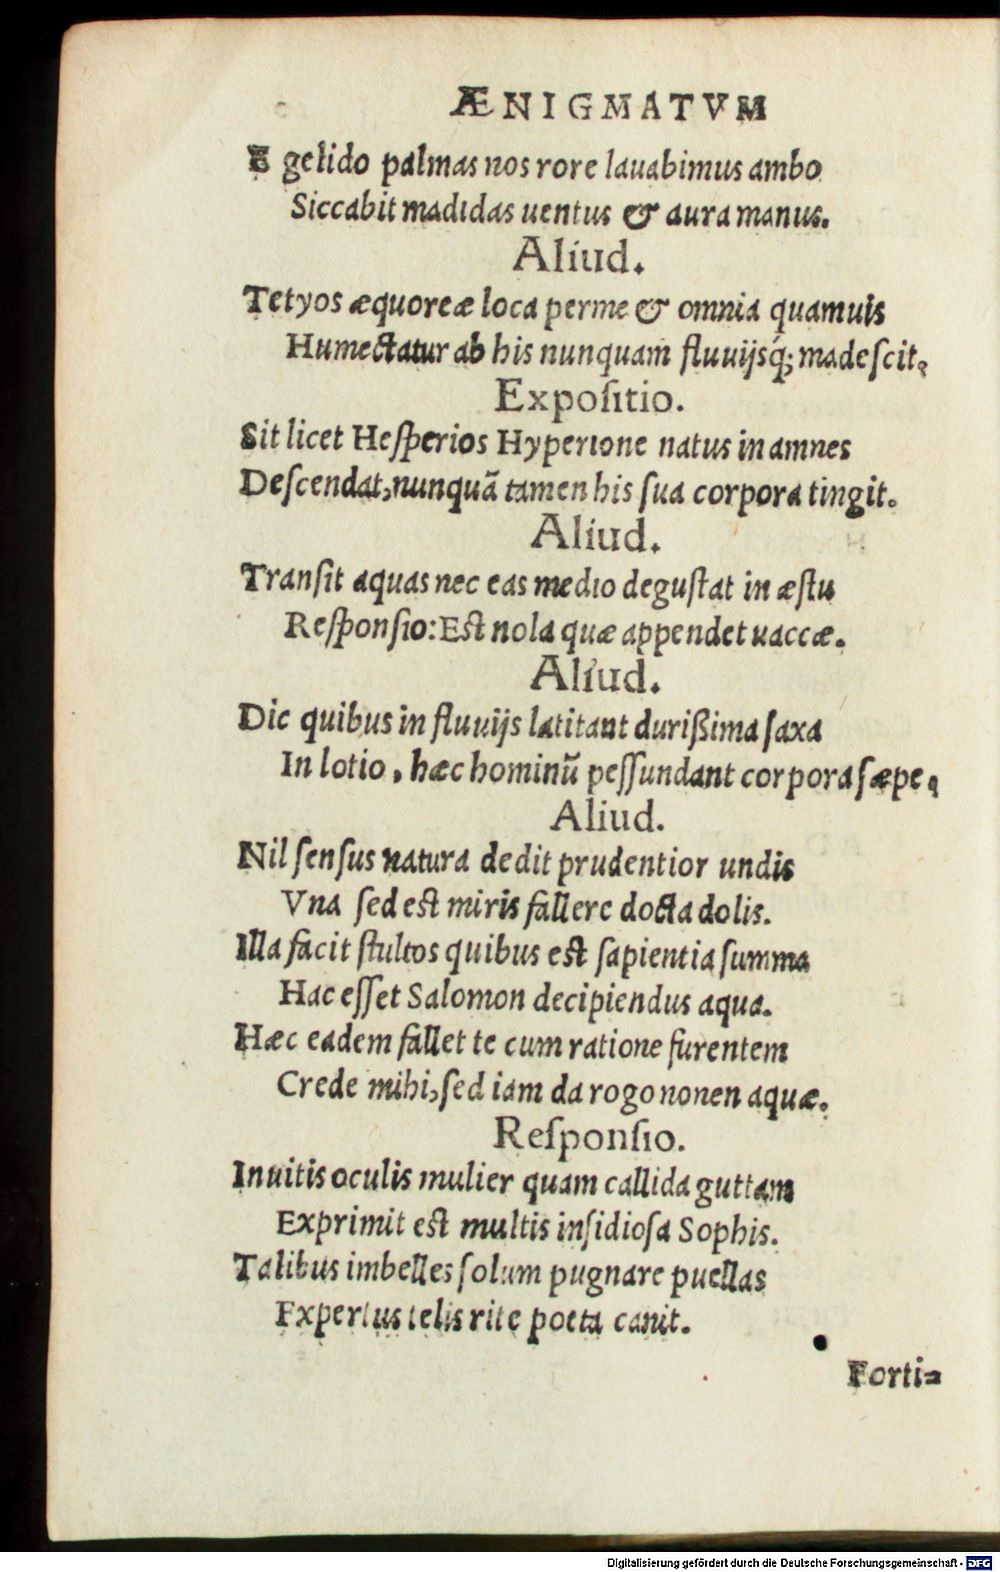 ÆNIGMATVM
E gelido palmas nos rore lauabimus ambo
Siccabit madidas uentus & aura manus.
Aliud.
Tetyos æquoreæ loca perme & omnia quamuis
Humectatur ab his nunquam fluuijsq́; madeſcit.
Expoſitio.
Sit licet Heſperios Hyperione natus in amnes
Deſcendat, nunquã tamen his ſua corpora tingit.
Aliud.
Tranſit aquas nec eas medio deguſtat in æſtu
Reſponſio: Eſt nola quæ appendet uaccæ.
Aliud.
Dic quibus in fluuijs latitant durißima ſaxa
In lotio, hæc hominũ peſſundant corpora ſæpe.
Aliud.
Nil ſenſus natura dedit prudentior undis
Vna ſed eſt miris fallere docta dolis.
Illa facit ſtultos quibus eſt ſapientia ſumma
Hac eſſet Salomon decipiendus aqua.
Hæc eadem fallet te cum ratione furentem
Crede mihi, ſed iam da rogo nonen aquæ.
Reſponſio.
Inuitis oculis mulier quam callida guttam
Exprimit eſt multis inſidioſa Sophis.
Talibus imbelles ſolum pugnare puellas
Expertus telis rite poeta canit.
Forti=
Digitalisierung gefördert durch die Deutsche Forschungsgemeinschaft - DFG